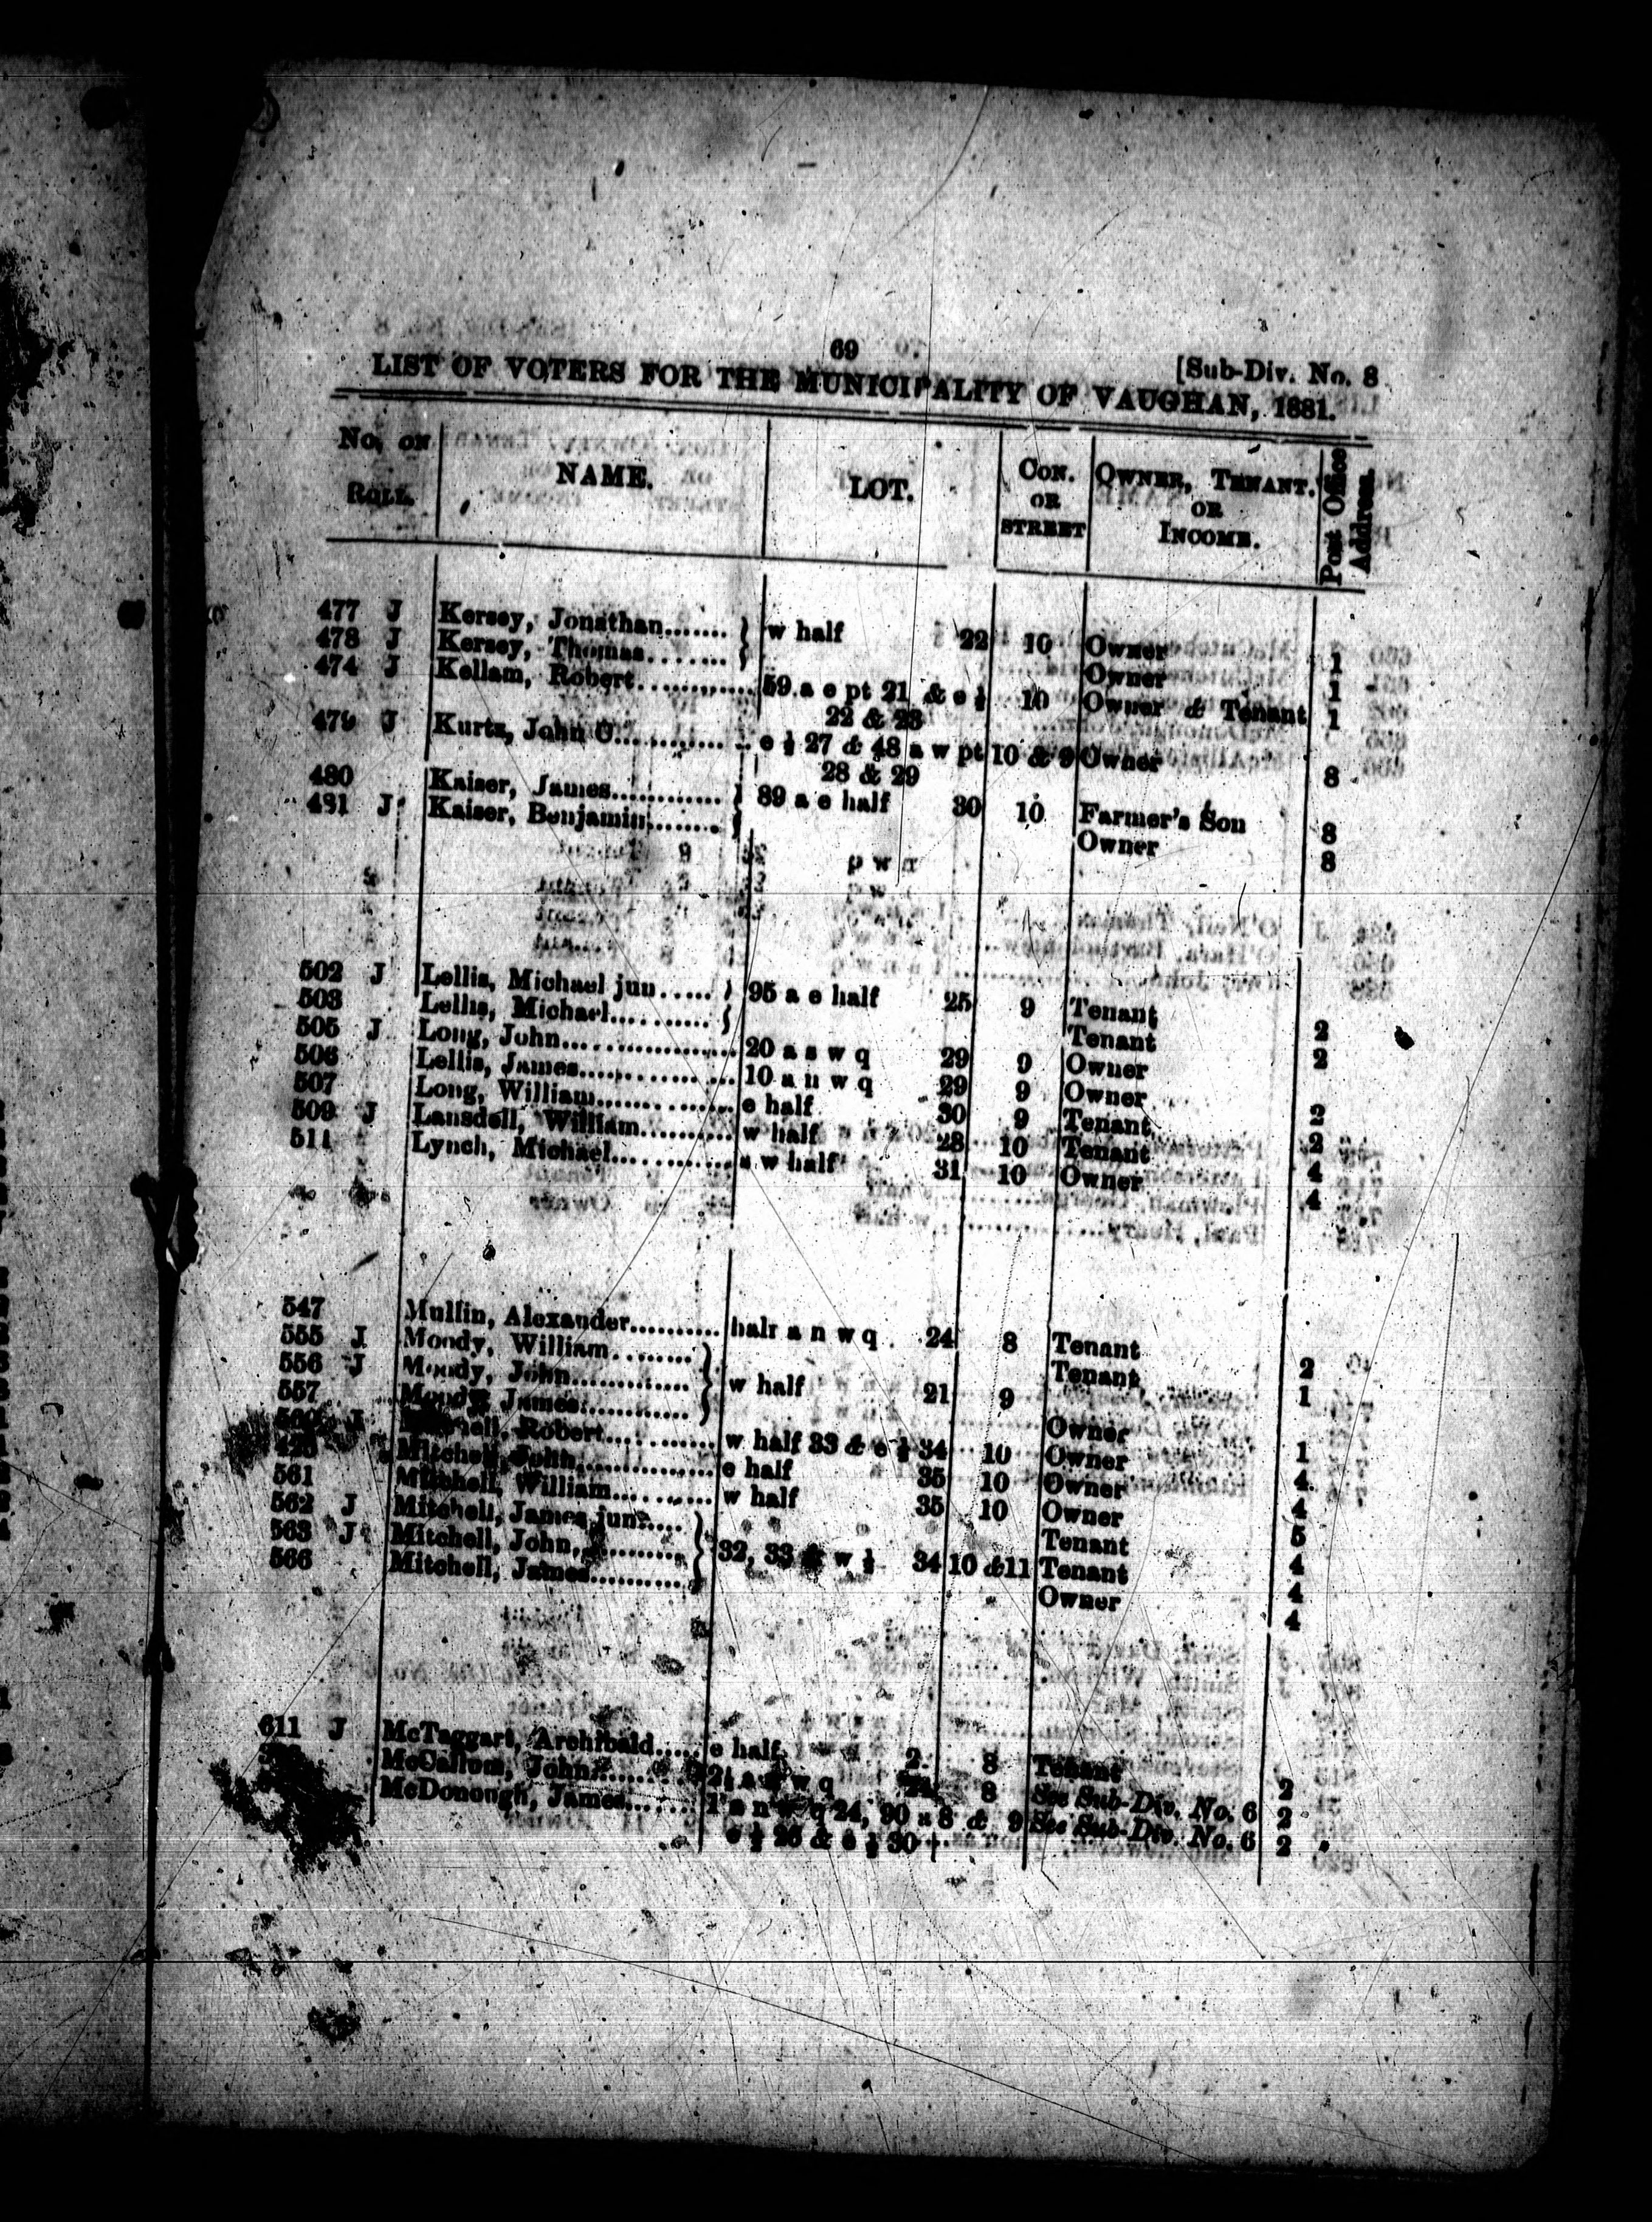 69
[Sub-Div. No. 8
LIST OF VOTERS FOR THE MUNICIPALITY OF VAUGHAN, 1881.
No, on Roll. NAME. LOT. Con. or street Owner, Tenant. or Income. Post Office Address.
477 J Kersey, Jonathan....... } w half 22 10 Owner 1
478 J Kersey, Thomas....... } Owner 1
474 J Kellam, Robert............ 59 a e pt 21 & e ½ 10 Owner & Tenant 1
22 & 23
479 J Kurtz, John C............ e ½ 27 & 48 a w pt 10 & 9 Owner 8
28 & 29
480 Kaiser, James............ } 89 a e half 30 10 Farmer's Son 8
481 J Kaiser, Benjamin........ } Owner 8
502 J Lellis, Michael jun..... } 95 a e half 25 9 Tenant 2
503 Lellis, Michael.......... } Tenant 2
505 J Long, John................. 20 a s w q 29 9 Owner
506 Lellis, James............... 10 a n w q 29 9 Owner 2
507 Long, William.............. e half 30 9 Tenant 2
509 J Lansdell, William.......... w half 28 10 Tenant 4
511 Lynch, Michael............ w half 31 10 Owner 4
547 Mullin, Alexander.......... half a n w q 24 8 Tenant 2
555 J Moody, William........ } Tenant 1
556 J Moody, John............. } w half 21 9
557 Moody, James............ } Owner 1
J Robert........... w half 33 & e ½ 34 10 Owner 4
Mitchell, John............... e half 35 10 Owner 4
561 Mitchell, William.......... w half 35 10 Owner 5
562 J Mitchell, James jun..... } Tenant 4
563 J Mitchell, John........... } 32, 33 & w ½ 34 10 & 11 Tenant 4
566 Mitchell, James.......... } Owner 4
611 J McTaggart, Archibald..... e half 8 Tenant 2
McCallum, John........ w q 8 See Sub-Div. No. 6 2
McDonough, James....... 24, 90 a 8 & 9 See Sub-Div. No. 6 2
e ½ 26 & e ½ 30